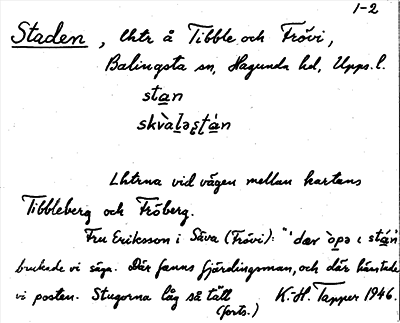 1-2
Staden, lhtr å Tibble och Frövi,
Balingsta sn, Hagunda hd, Upps. l.
stan
skvàləʂʈán
Lhtrna vid vägen mellan kartans
Tibbleberg och Fröberg.
Fru Eriksson i Säva (Frövi): "'dær òpə ɩ stán"
brukade vi säga. Där fanns fjärdingsman, och där hämtade
vi posten. Stugorna låg så tätt
(forts.) K.-H. Tapper 1946.